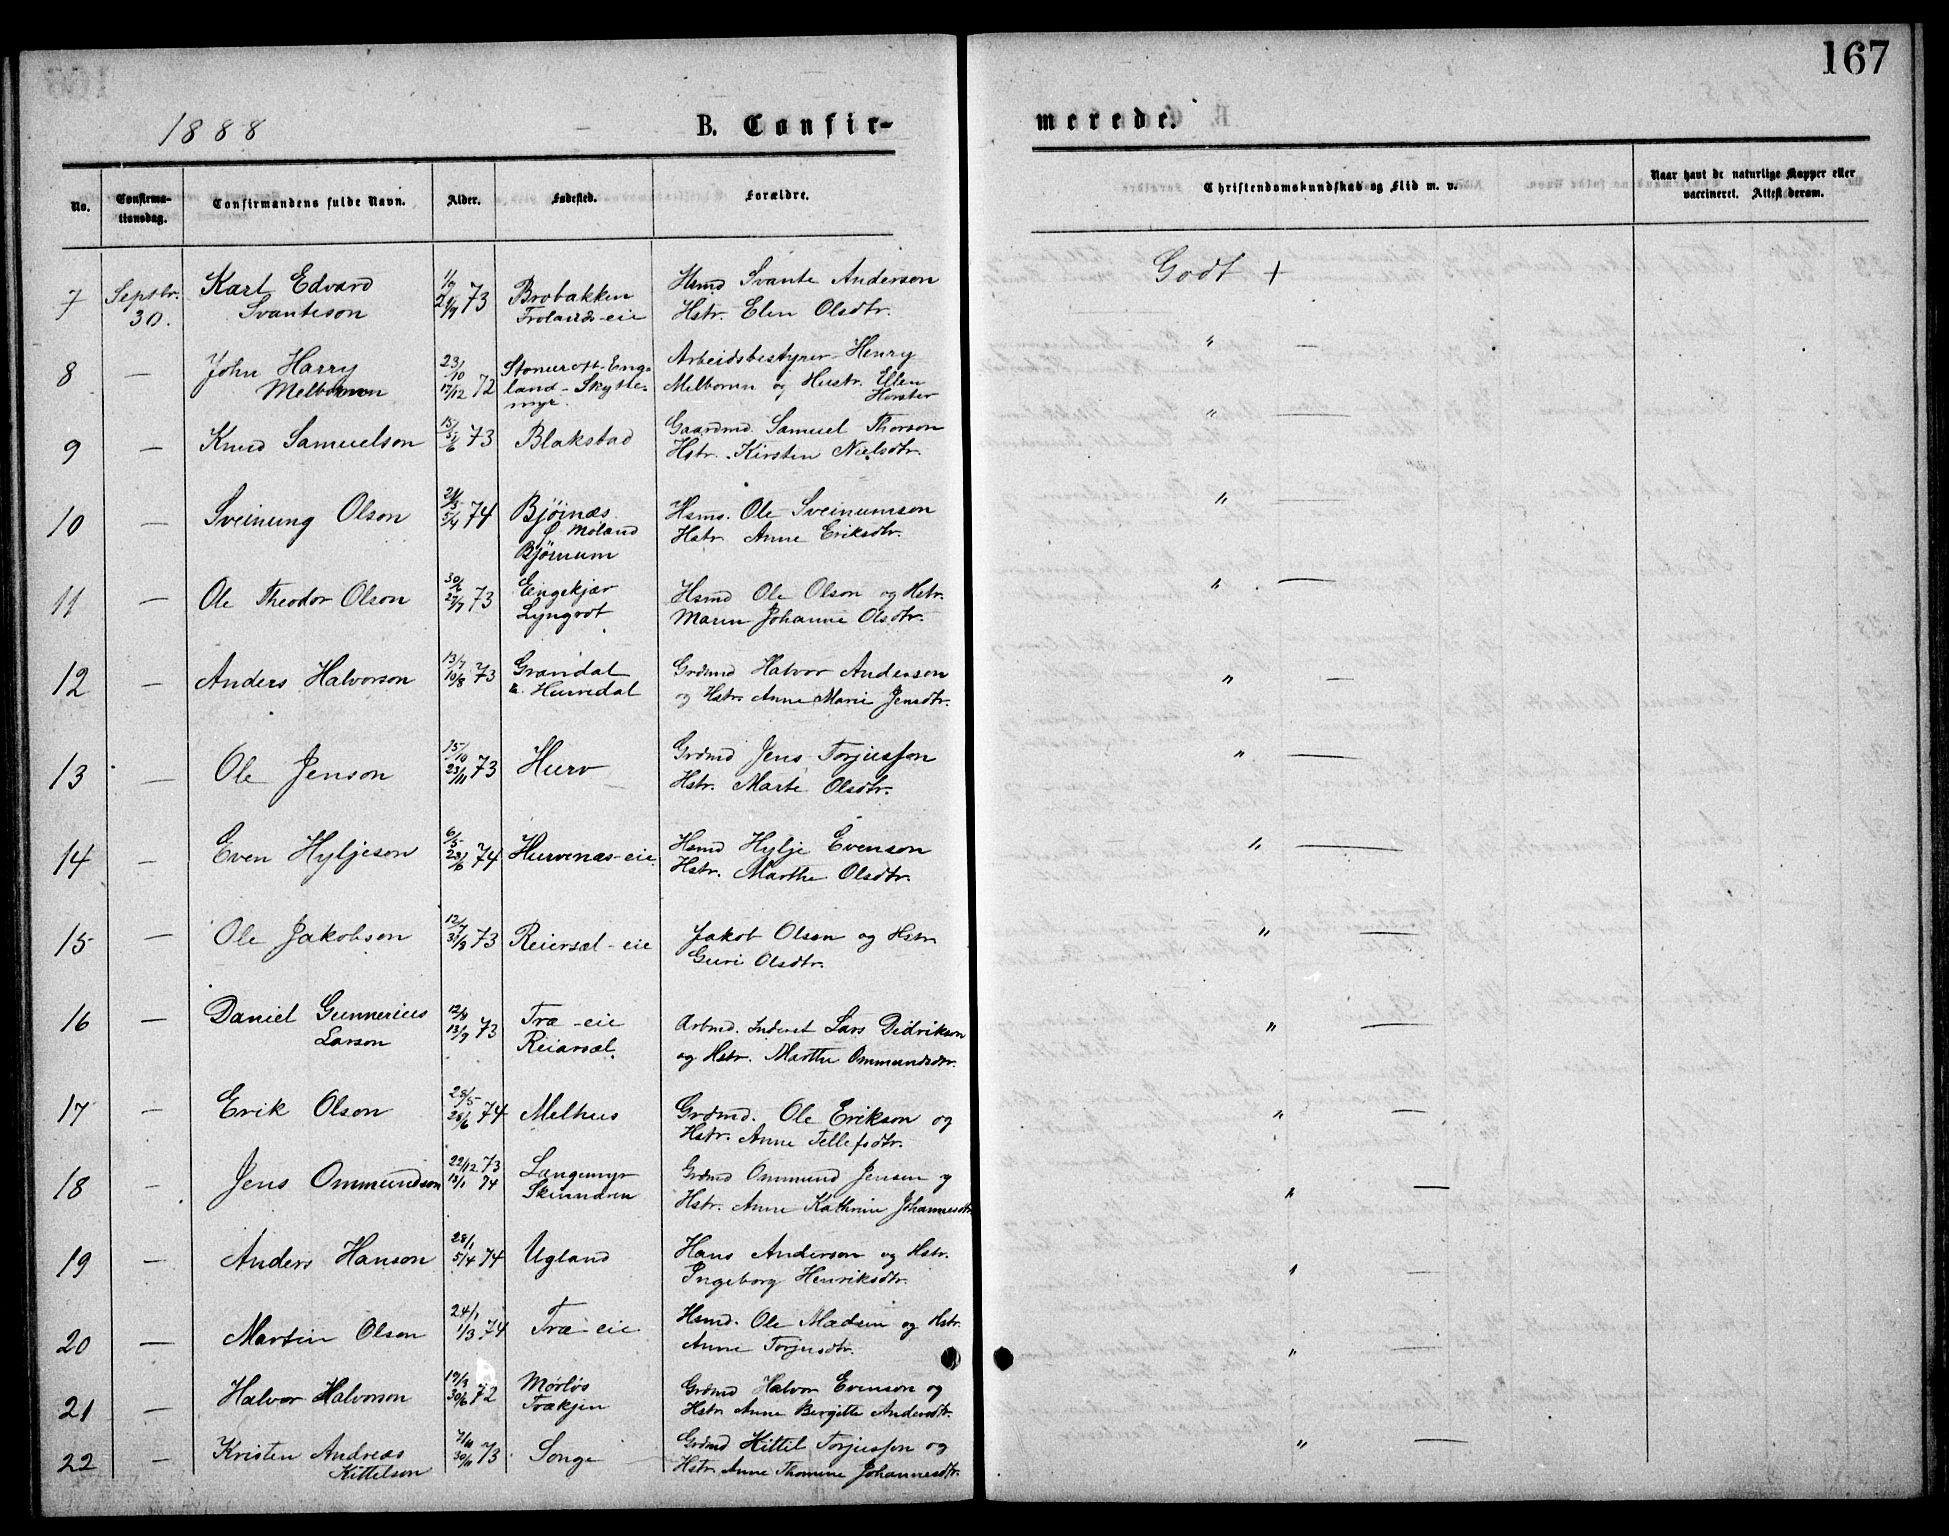 167
1888
B. Confirmerede.
No. Confirmationsdag. Confirmandens fulde Navn. Alder. Fødested. Forældre. Christendomskundskab og Flid m. v. Naar havt de naturlige Kopper eller vaccineret. Attest derom.
7 Septbr. 30. Karl Edvard Svanteson 73 Brobakken Frolands-eie Hsmd Svante Anderson Hstr. Elen Olsdtr. Godt +
8 — John Harry 23/10 17/12 72 England - Skyttemyr. Arbeidsbestyrer Henry og Hustr. Ellen " —
9 — Knud Samuelson 73 Blakstad Gaardmd. Samuel Thorson Hstr. Kirsten Nielsdtr. " —
10 — Sveinung Olson 5/4 74 Bjøinæs Ø. Moland Hsmd. Ole Sveinumson Hstr. Anne Eriksdtr. " —
11 — Ole Theodor Olson 27/7 73 Bjørnum Engekjær Lyngrot Hsmd Ole Olson og Hstr. Maren Johanne Olsdtr. " —
12 — Anders Halvorson 13/7 10/8 73 Grændal Grdmd Halvor Anderson og Hstr. Anne Marie Jensdtr. " —
13 — Ole Jenson 15/10 23/11 73 Hurv Grdmd Jens Torjusson Hstr. Marte Olsdtr. " —
14 — Even Hyljeson 6/5 28/6 74 Hurvenæs-eie Hsmd Hylje Evenson Hstr. Marthe Olsdtr. " —
15 — Ole Jakobson 12/7 31/8 73 Reiersæl-eie Jakob Olson og Hstr. Guri Olsdtr. " —
16 — Daniel Gunnerius Larson 12/8 13/9 73 Træ-eie Reiarsæl. Arbmd. Inderst Lars Didrikson og Hstr. Marthe Ommundsdtr. " —
17 — Erik Olson 28/5 28/6 74 Melhus Grdmd. Ole Erikson og Hstr. Anne Tellefsdtr. " —
18 — Jens Ommundson 22/12 73 13/1 74 Langemyr Grdmd Ommund Jensen og Hstr. Anne Kathrine Johannesdtr. " —
19 — Anders Hanson 28/1 5/4 74 Ugland Hans Anderson og Hstr. Ingeborg Henriksdtr. " —
20 — Martin Olson 24/1 1/3 74 Træ-eie Hsmd. Ole Madsen og Hstr. Anne Torjusdtr. " —
21 — Halvor Halvorson 30/6 72 Mørløs Trækjen Grdmd Halvor Evenson og Hstr. Anne Bergitte Andersdtr.
22 — Kristen Andreas Kittelson 30/11 73 Songe Grdmd Kittil Torjusson og Hstr. Anne Thomine Johannesdtr. " —